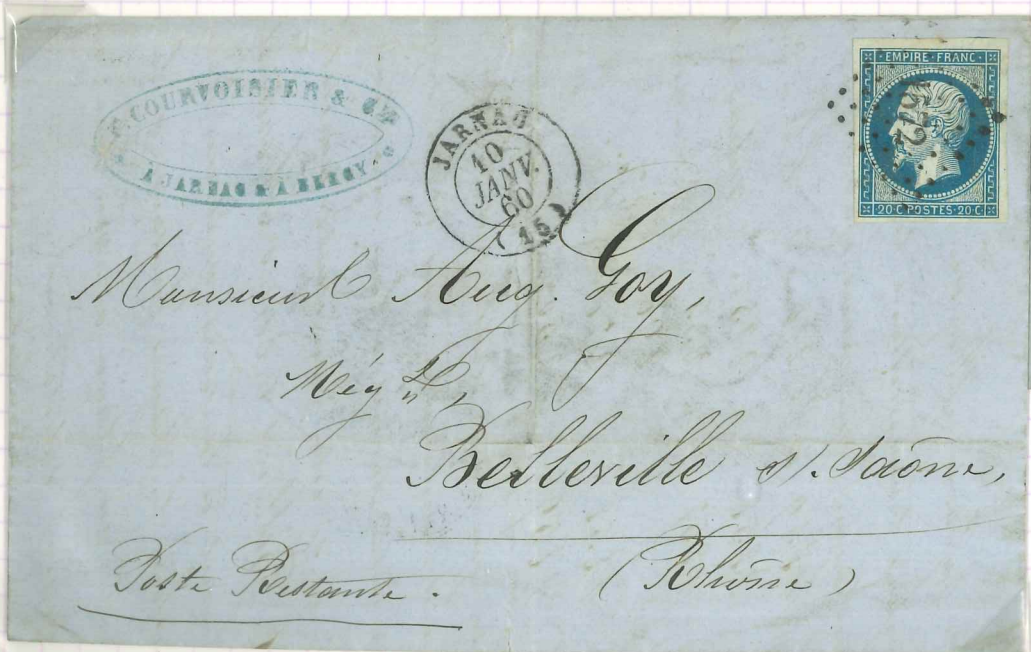 COURVOISIER & Cie
A JARNAC & A BERCY
JARNAC
10
JANV.
60
(15)
EMPIRE FRANC
20 C POSTES 20 C
Monsieur Aug. Goy,
Nég t,
Belleville s/. Saône,
(Rhône)
Poste Restante.